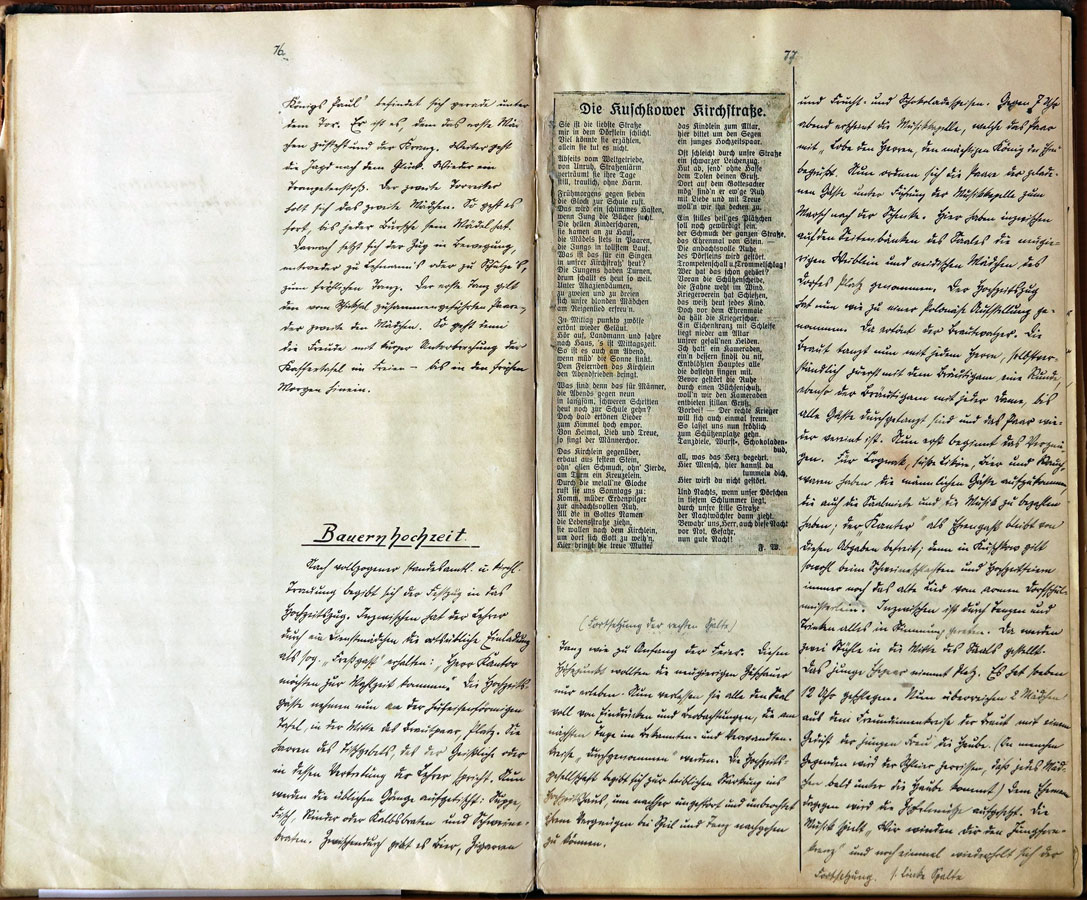 76.
Königs Paul" befindet sich gerade unter
dem Tor. Er ist es, dem das erste Mäd-
chen zusteht und der Kranz. Weiter geht
die Jagd nach dem Glück. Wieder ein
Trompetenstoß. Der zweite Torreiter
holt sich das zweite Mädchen. So geht es
fort, bis jeder Bursche sein Mädel hat.
Darnach setzt sich der Zug in Bewegung,
entweder zu Lehmann's oder zu Schulze's,
zum fröhlichen Tanz. Der erste Tanz gilt
den vom Schicksal zusammengeführten Paaren,
der zweite den Mädchen. So geht denn
die Freude mit kurzer Unterbrechung der
Kaffeetafel im Freien – bis in den frühen
Morgen hinein.
Bauernhochzeit.
Nach vollzogener standesamtl. u. kirchl.
Trauung begibt sich der Festzug in das
Hochzeitshaus. Inzwischen hat der Lehrer
durch ein Dienstmädchen die ortsübliche Einladung
als sog. "Freßgast" erhalten: "Herr Kantor
möchten zur Mahlzeit kommen". Die Hochzeits-
gäste nehmen nun an der hufeisenförmigen
Tafel, in der Mitte das Brautpaar, Platz. Sie
harren des Tischgebets, das der Geistliche oder
in dessen Vertretung der Lehrer spricht. Nun
werden die üblichen Gänge aufgetischt: Suppe,
Fisch, Rinder oder Kalbsbraten und Schweine-
braten. Zwischendurch gibt es Bier, Zigarren
77.
Die Kuschkower Kirchstraße.
Sie ist die liebste Straße
mir in dem Dörflein schlicht.
Viel könnte sie erzählen,
allein sie tut es nicht.
Abseits vom Weltgetriebe,
von Unruh, Straßenlärm
verträumt sie ihre Tage
still, traulich, ohne Harm.
Frühmorgens gegen sieben
die Glock zur Schule ruft.
Das wird ein schlimmes Hasten,
wenn Jung die Bücher sucht.
Die hellen Kinderscharen,
sie kamen an zu Hauf,
die Mädels stets in Paaren,
die Jungs in tollstem Lauf.
Was ist das für ein Singen
in unsrer Kirchstraß' heut?
Die Jungens haben Turnen,
drum schallt es heut so weit.
Unter Akazienbäumen,
zu zweien und zu dreien
sich unsre blonden Mädchen
am Reigenlied erfreu'n.
Zu Mittag punkto zwölfe
ertönt wieder Geläut.
Hör auf, Landmann und fahre
nach Haus, 's ist Mittagszeit.
So ist es auch am Abend,
wenn müd' die Sonne sinkt.
Dem Feiernden das Kirchlein
den Abendfrieden bringt.
Was sind denn das für Männer,
die Abends gegen neun
in langsam, schweren Schritten
heut noch zur Schule gehn?
Doch bald ertönen Lieder
zum Himmel hoch empor.
Von Heimat, Lieb und Treue,
so singt der Männerchor.
Das Kirchlein gegenüber,
erbaut aus festem Stein,
ohn' allen Schmuck, ohn' Zierde,
am Turm ein Kreuzelein.
Durch die metall'ne Glocke
ruft sie uns Sonntags zu:
Komm, müder Erdenpilger
zur andachtsvollen Ruh.
All die in Gottes Namen
die Lebensstraße ziehn,
sie wallen nach dem Kirchlein,
um dort sich Gott zu weih'n.
Hier bringt die treue Mutter
das Kindlein zum Altar,
hier bittet um den Segen
ein junges Hochzeitspaar.
Oft schleicht durch unsre Straße
ein schwarzer Leichenzug.
Hut ab, send' ohne Hasse
dem Toten deinen Gruß.
Dort auf dem Gottesacher
mög' find'n er ew'ge Ruh
mit Liebe und mit Treue
woll'n wir ihn decken zu.
Ein stilles heil'ges Plätzchen
soll noch gewürdigt sein,
der Schmuck der ganzen Straße,
das Ehrenmal von Stein. —
Die andachtsvolle Ruhe
des Dörfleins wird gestört.
Trompetenschall u. Trommelschlag!
Wer hat das schon gehört?
Voran die Schützenscheibe,
die Fahne weht im Wind.
Kriegerverein hat Schießen,
das weiß heut jedes Kind.
Doch vor dem Ehrenmale
da hält die Kriegerschar.
Ein Eichenkranz mit Schleife
liegt nieder am Altar
unser gefall'nen Helden.
Ich hatt' ein Kameraden,
ein'n bessern findst du nit,
Entblößten Hauptes alle
die dasteh'n singen mit.
Bevor gestört die Ruhe
durch einen Büchsenschuß,
woll'n wir den Kameraden
entbieten stillen Gruß.
Vorbei! — Der rechte Krieger
will sich auch einmal freun.
So lasset uns nun fröhlich
zum Schützenplatze gehn.
Tanzdiele, Wurst-, Schokoladen-
bud,
all, was das Herz begehrt.
Hier Mensch, hier kannst du
tummeln dich,
Hier wirst du nicht gestört.
Und Nachts, wenn unser Dörschen
in tiefem Schlummer liegt,
durch unsre stille Straße
der Nachtwächter dann zieht.
Bewahr' uns, Herr, auch diese Nacht
vor Not, Gefahr,
nun gute Nacht!
F. W.
(Fortsetzung der rechten Spalte)
Tanz wie zu Anfang der Feier. Diesen
Höhepunkt wollten die neugierigen Zuschauer
nur erleben. Nun verlassen sie alle den Saal
voll von Eindrücken und Beobachtungen, die am
nächsten Tage im Bekannten- und Verwandten-
kreise "durchgenommen" werden. Die Hochzeits-
gesellschaft begibt sich zur leiblichen Stärkung ins
Hochzeitshaus, um nachher ungestört und unbeobachtet
ihrem Vergnügen bei Spiel und Tanz nachgehen
zu können.
und Frucht- und Schokoladespeisen. Gegen 7 Uhr
abend erscheint die Musikkapelle, welche das Paar
mit "Lobe den Herren, den mächtigen König der Ehren"
begrüßt. Nun ordnen sich die Paare der geladenen
Gäste unter Führung der Musikkapelle zum
Marsch nach der Schenke. Hier haben inzwischen
auf den Seitenbänken des Saales die neugie-
rigen Weiblein und neidischen Mädchen des
Dorfes Platz genommen. Der Hochzeitszug
hat nun wie zu einer Polonaise Aufstellung ge-
nommen. Da ertönt der Brautwalzer. Die
Braut tanzt nun mit jedem Herrn, selbstver-
ständlich zuerst mit dem Bräutigam eine Runde,
ebenso der Bräutigam mit jeder Dame, bis
alle Gäste durchgetanzt sind und das Paar wie-
der vereint ist. Nun erst beginnt das Vergnü-
gen. Für Cognak, süße Likör, Bier und
haben die männlichen Gäste aufzukommen,
die auch die Saalmiete und die Musik zu bezahlen
haben; der "Kantor" als Ehrengast bleibt von
diesen Abgaben befreit; denn in Kuschkow gilt
sowohl beim Schweineschlachten und Hochzeitsfeiern
immer noch das alte Lied vom armen Dorfschul-
meisterlein. Inzwischen ist durch Tanzen und
Trinken alles in Stimmung geraten. Da werden
zwei Stühle in die Mitte des Saals gestellt.
Das junge Ehepaar nimmt Platz. Es hat soeben
12 Uhr geschlagen. Nun überreichen 2 Mädchen
aus dem Freundinnenkreise der Braut mit einem
Gedicht der jungen Frau die Haube. (In manchen
Gegenden wird der Schleier zerrissen, daß jedes Mäd-
chen bald unter die Haube kommt) dem Ehemann
dagegen wird die Zipfelmütze aufgesetzt. Die
Musik spielt "Wir winden dir den Jungfern-
kranz" und noch einmal wiederholt sich der
Fortsetzung. s. linke Spalte